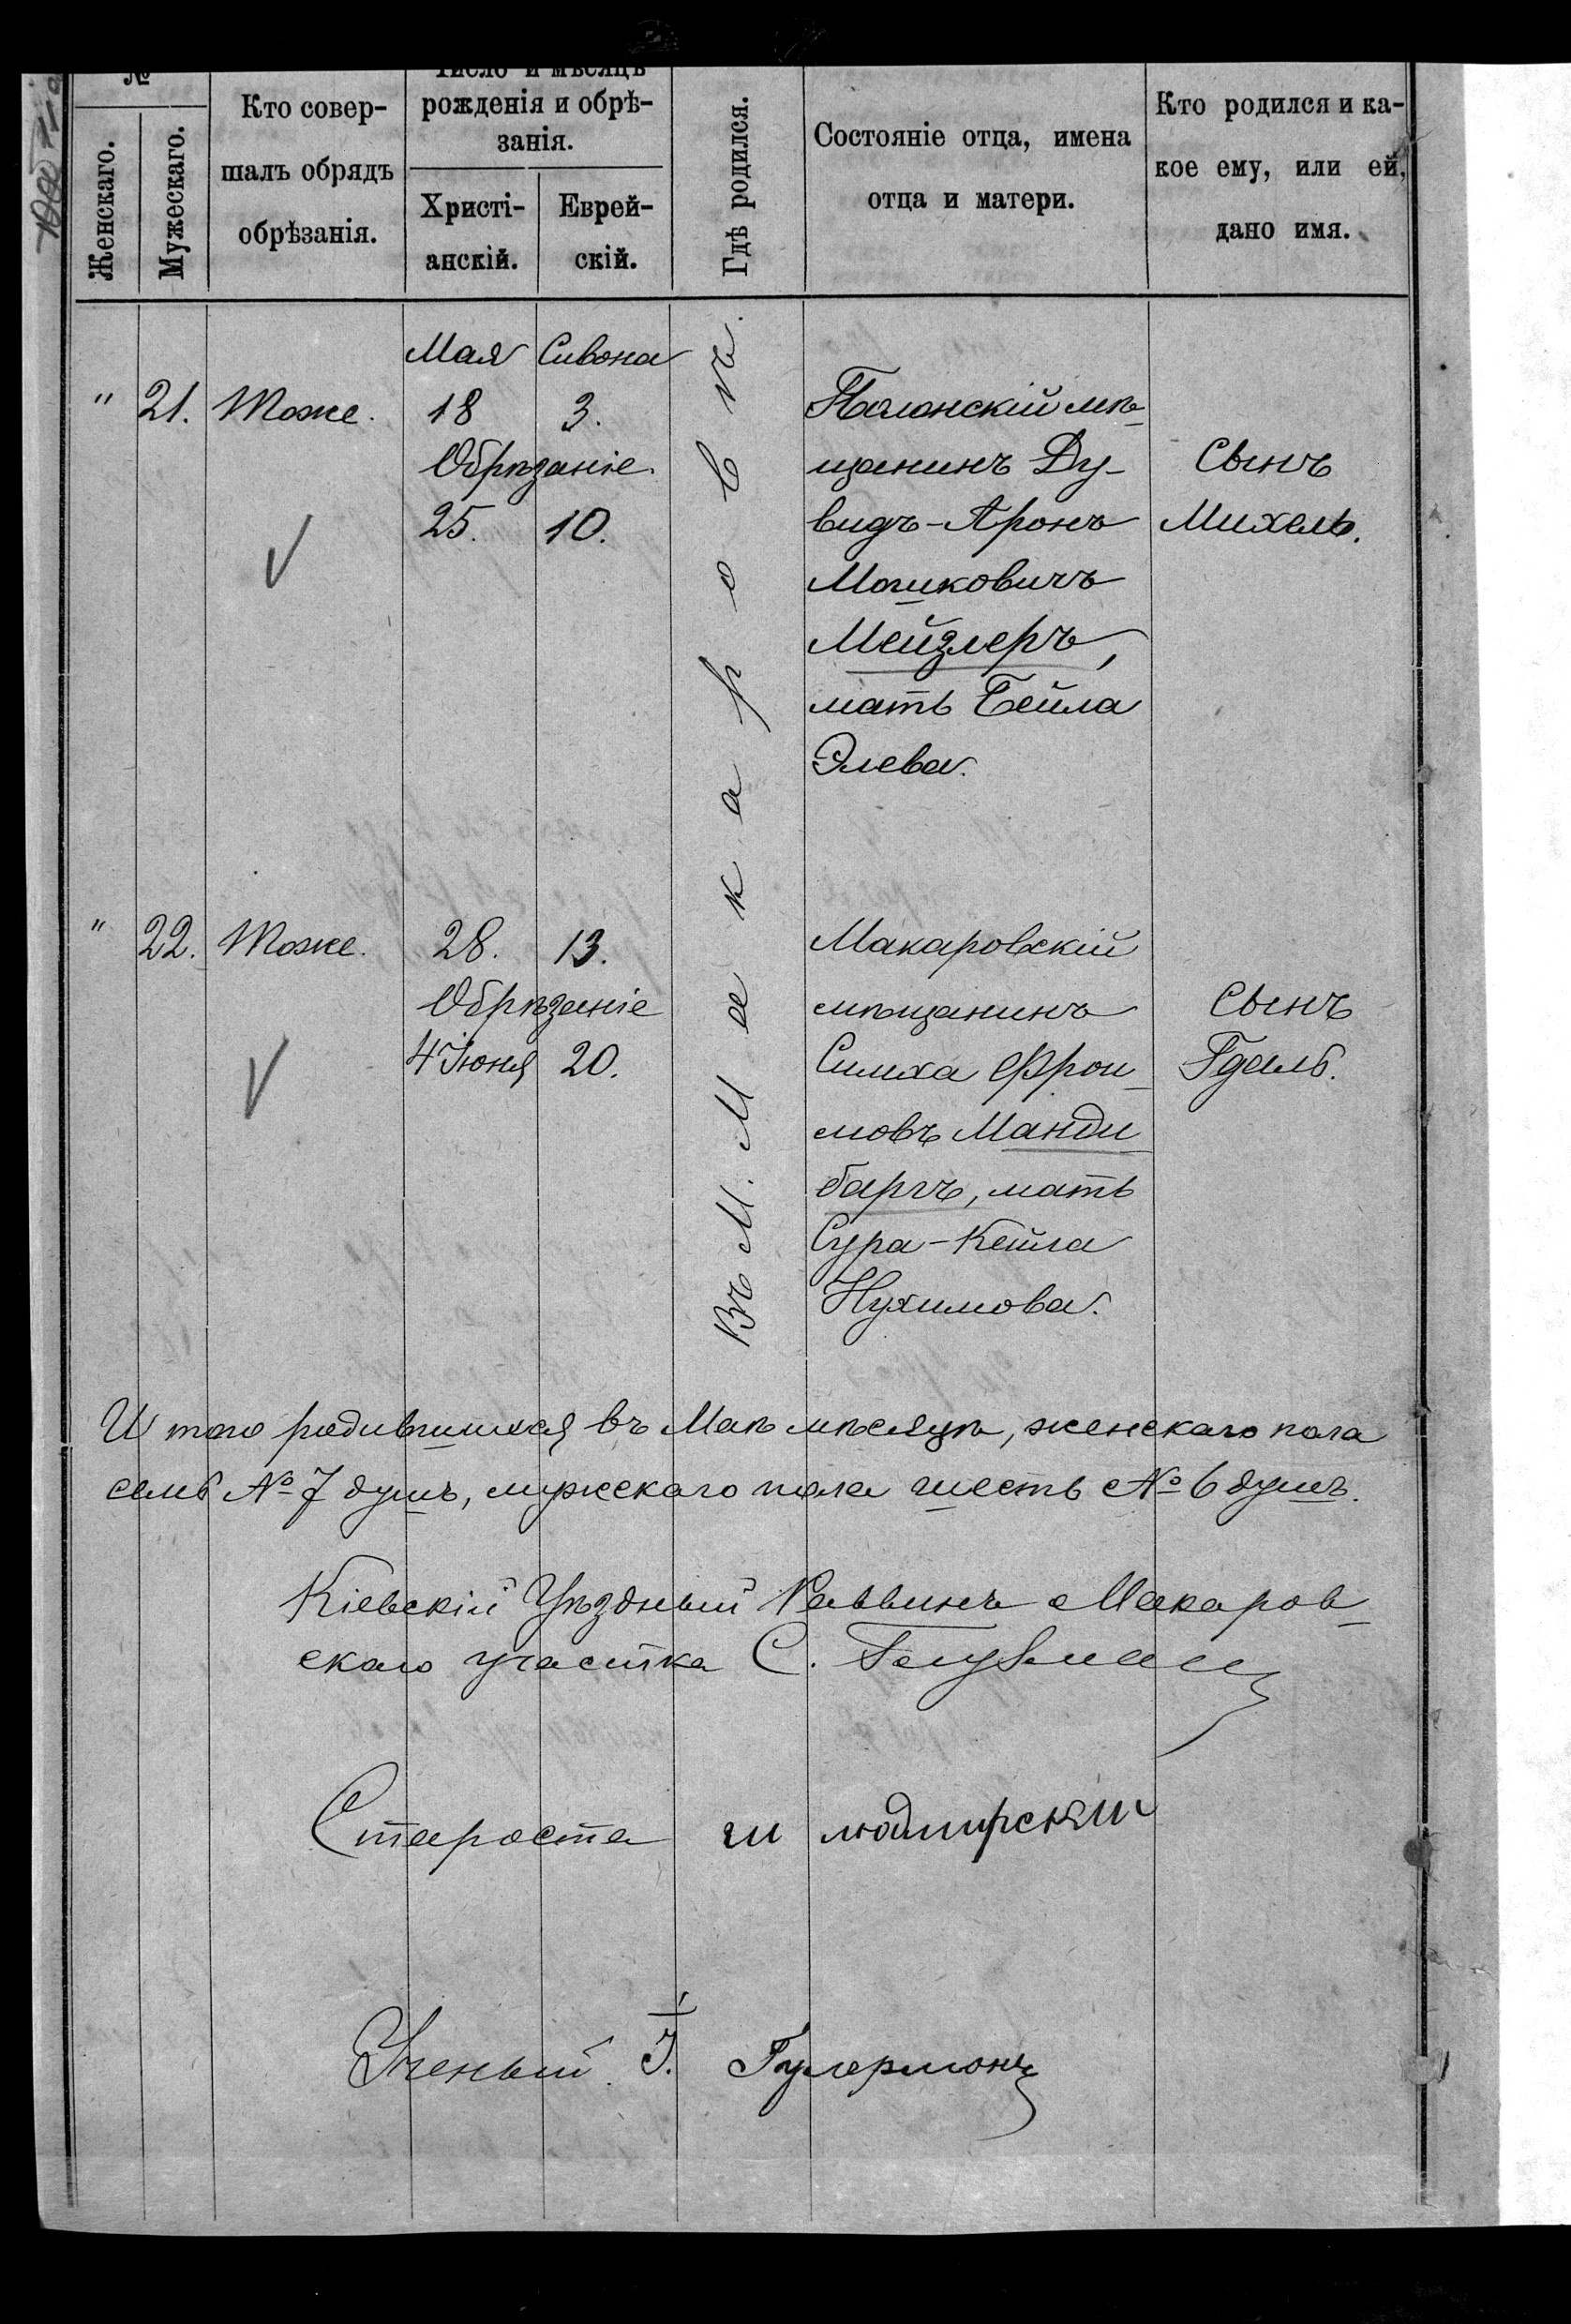 №
Женскаго.
Мужескаго.
Кто совер-
шалъ обрядъ
обрѣзанія.
Число и мѣсяцъ
рожденія и обрѣ-
занія.
Христі-
анскій.
Еврей-
скій.
Гдѣ родился.
Состояніе отца, имена
отца и матери.
Кто родился и ка-
кое ему, или ей,
дано имя.
Мая Сивона
" 21. Тоже. 18 3.
Обрѣзаніе.
25. 10.
Въ М. Макаровѣ.
Полонскій мѣ-
щанинъ Ду-
видъ-Аронъ
Мошковичъ
Мейзлеръ,
мать Бейла
Элева.
Сынъ
Михель.
" 22. Тоже. 28. 13.
Обрѣзаніе
4 Іюня 20.
Макаровскій
мѣщанинъ
Симха Фрои-
мовъ Манди
баргъ, мать
Сура-Кейла
Нухимова.
Сынъ
Гдаль.
И того родившихся въ Маѣ мѣсяцѣ, женскаго пола
семь № 7 душъ, мужескаго пола шесть № 6 душъ.
Кіевскій Уѣздный Раввинъ Макаров-
скаго участка С.
Староста Ш Людмирский
Ученый І.